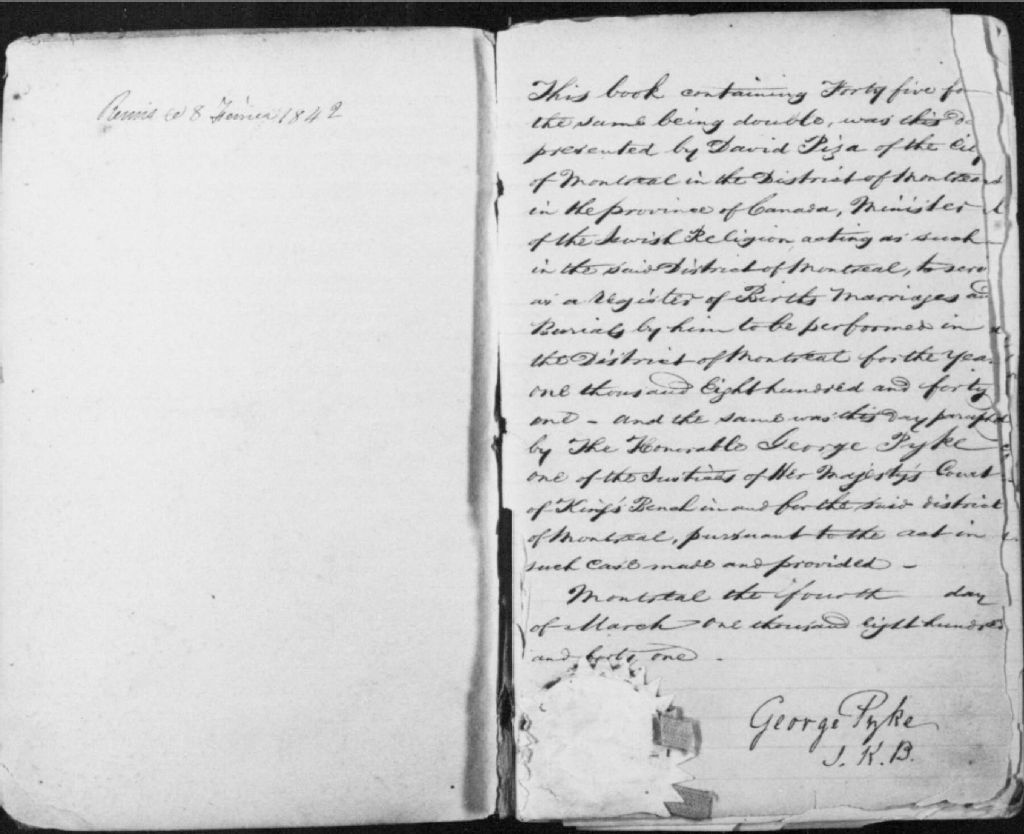 Remis le 8 Février 1842
This book containing Forty five fo
the same being double, was this da
presented by David Piza of the City
of Montreal in the District of Montreal
in the province of Canada, Minister
of the Jewish Religion acting as such
in the said District of Montreal, to serv
as a Register of Births Marriages an
Burials by him to be performed in
the District of Montreal for the Year
one thousand Eight hundred and forty
one - and the same was this day paraphed
by The Honorable George Pyke
one of the Justices of Her Majesty's Court
of King's Bench in and for the said district
of Montreal, pursuant to the act in
such case made and provided -
Montreal the fourth day
of March One thousand Eight hundred
and forty one -
George Pyke
J. K. B.